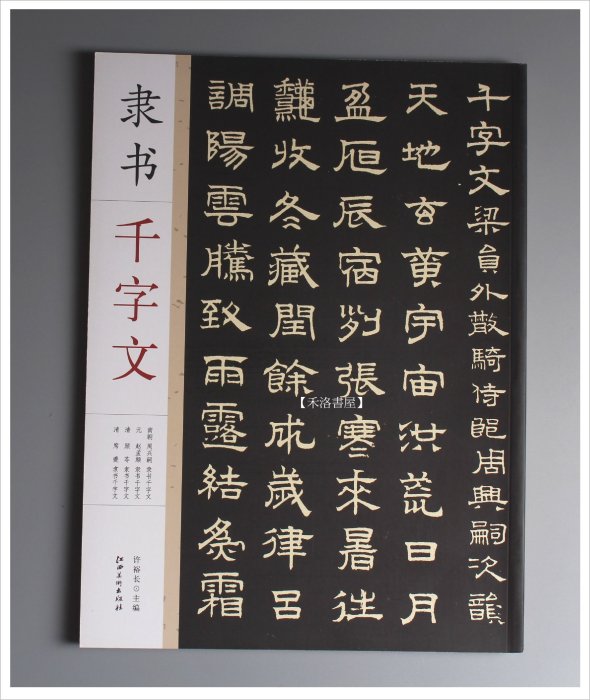 隶书
千字文
南朝 周兴嗣 隶书千字文
元 赵孟頫 隶书千字文
清 顾苓 隶书千字文
清 隶书千字文
许裕长⊙主编
江西美術出版社
千字文梁員外散騎侍郎周興嗣次韻
天地玄黃宇宙洪荒日月
盈昃辰宿列張寒來暑往
龝收冬藏閏餘成歲律呂
調陽雲騰致雨露結為霜
【禾洛書屋】